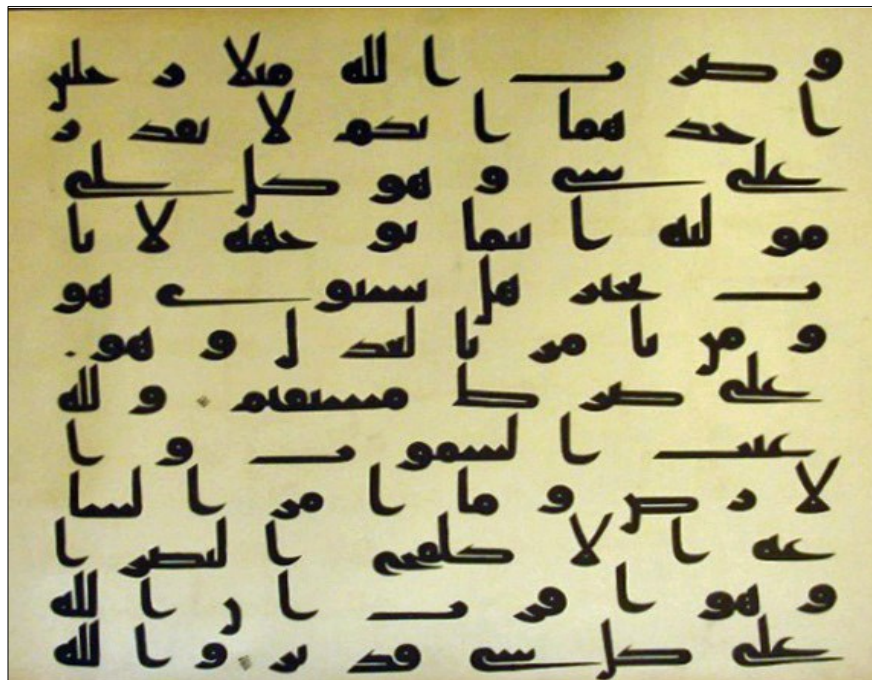 وضرب الله مثلا رجلين
احدهما ابكم لا يقدر
على شى وهو كل على
موليه اينما يوجهه لا يا
ت بخير هل يستوى هو
ومن يامر بالعدل وهو
على صرط مستقيم ولله
غيب السموت وا
لارض وما امر السا
عة الا كلمح البصر ا
و هو اقرب ان الله
على كل شى قدير والله